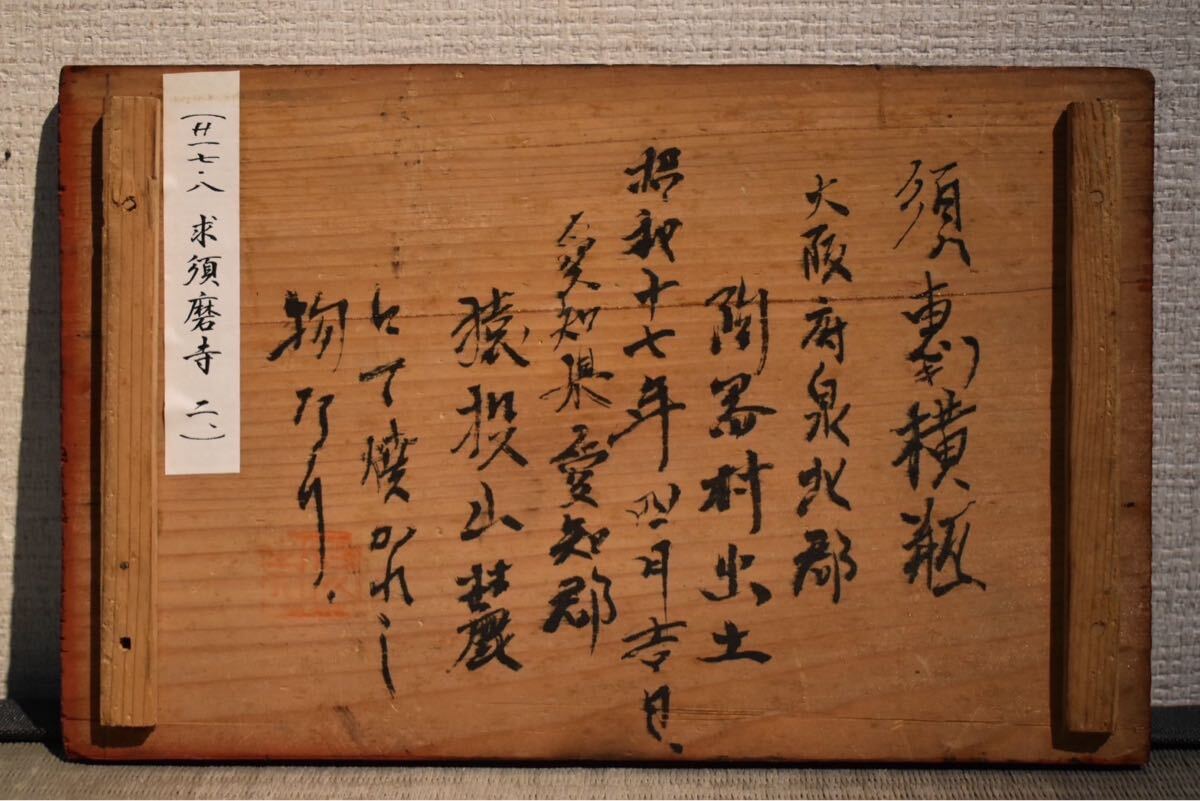 須恵製横瓶
大阪府泉北郡
陶器村出土
昭和十七年四月吉日、
愛知県愛知郡
猿投山麓
にて焼かれし
物なり、
(廿一七・八 求須磨寺 二、)